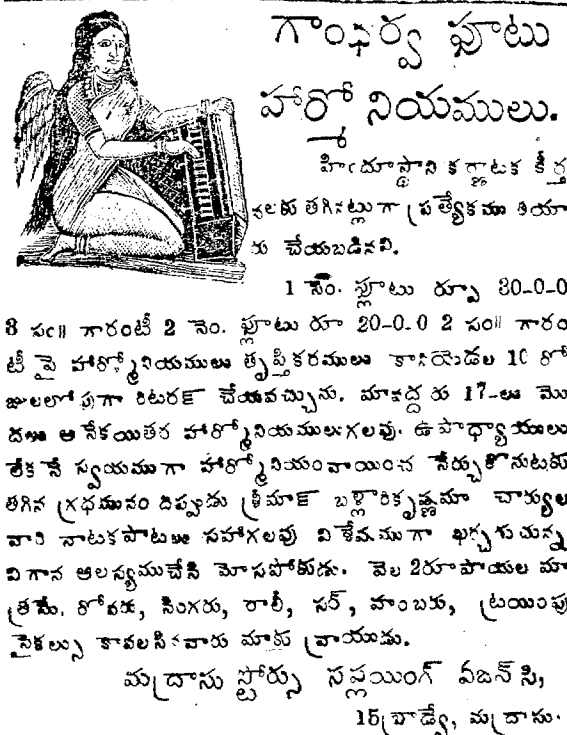 గాంధర్వ ఫ్లూటు
హార్మోనియములు.
హిందూస్థాని కర్ణాటక కీర్త
నలకు తగినట్లుగా ప్రత్యేకము తయా
రు చేయబడినవి.
1 నెం. ఫ్లూటు రూపా 30-0-0
3 సం॥ గారంటీ 2 నెం. ఫ్లూటు రూ 20-0-0 2 సం॥ గారం
టీ పై హార్మోనియములు తృప్తికరములు కానియెడల 10 రో
జులలోపుగా రిటరన్ చేయవచ్చును. మావద్ద రు 17-లు మొ
దలు అనేకయితర హార్మోనియములుగలవు. ఉపాధ్యాయులు
లేకనే స్వయముగా హార్మోనియంవాయించ నేర్చుకొనుటకు
తగిన గ్రథమునం దిప్పుడు శ్రీమాన్ బళ్లారికృష్ణమా చార్యుల
వారి నాటకపాటలు సహాగలవు విశేషముగా ఖర్చగుచున్న
విగాన ఆలస్యముచేసి మోసపోకుడు. వెల 2రూపాయల మా
త్రమే. రోవరు, సింగరు, రాలీ, సర్, హంబరు, ట్రయింఫు
సైకల్సు కావలసినవారు మాకు వ్రాయుడు.
మద్రాసు స్టోర్సు సప్లయింగ్ ఏజన్సి,
15 బ్రాడ్వే, మద్రాసు.